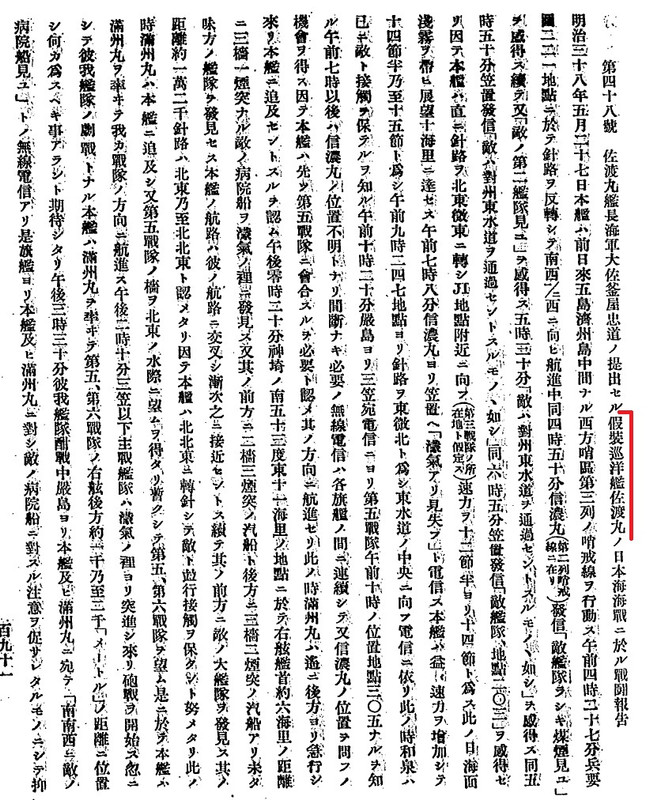 第四十八號　佐渡丸艦長海軍大佐釜屋忠道ノ提出セル假裝巡洋艦佐渡丸ノ日本海海戰ニ於ル戰鬪報告
明治三十八年五月二十七日本艦ハ前日來五島濟州島中間ナル西方哨區第三列ノ哨戒線ヲ行動ス午前四時二十七分兵要
圖二二一地點ニ於テ針路ヲ反轉シテ南西/西ニ向ヒ航進中同四時五十分信濃丸(第二列哨戒線ニ在リ)發信「敵艦隊ラシキ煤煙見ユ」
ヲ感得ス續テ又「敵ノ第二艦隊見ユ」ヲ感得ス五時三十分「敵ハ對州東水道ヲ通過セントスルモノヽ如シ」ヲ感得ス同五
時五十分笠置發信「敵ハ對州東水道ヲ通過セントスルモノヽ如シ」同六時五分笠置發信「敵艦隊、地點二〇三」ヲ感得セ
リ因テ本艦ハ直ニ針路ヲ北東微東ニ轉シJI地點附近ニ向フ(第三戰隊ノ所在地ト假定ス)速力ヲ十二節半ヨリ十四節ト爲ス此ノ日海面
淺霧ヲ帶ヒ展望十海里ニ達セス午前七時八分信濃丸ヨリ笠置ヘ「濛氣アリ見失フ」ト電信ス本艦ハ益〻速力ヲ增加シテ
十四節半乃至十五節ト爲シ午前九時二四七地點ヨリ針路ヲ東微北ト爲シ東水道ノ中央ニ向フ電信ニ依リ此ノ時和泉ハ
已ニ敵ト接觸ヲ保テルヲ知ル午前十時二十分嚴島ヨリ三笠宛電信ニヨリ第五戰隊午前十時ノ位置地點三〇五ナルヲ知
ル午前七時以後ハ信濃丸ノ位置不明トナリ間斷ナキ必要ノ無線電信ハ各旗艦ノ間ニ連續シテ又信濃丸ノ位置ヲ問フノ
機會ヲ得ス因テ本艦ハ先ツ第五戰隊ニ會合スルヲ必要ト認メ其ノ方向ニ航進セリ此ノ時滿州丸ハ遙ニ後方ヨリ急行シ
來リ本艦ニ追及セントスルヲ認ム午後零時三十分神埼ノ南五十三度東十一海里ノ地點ニ於テ右舷艦首約六海里ノ距離
ニ三檣一煙突ナル敵ノ病院船ヲ濛氣ノ裡ニ發見ス又其ノ前方ニ二檣三煙突ノ汽船ト後方ニ三檣二煙突ノ汽船アリ未タ
味方ノ艦隊ヲ發見セス本艦ノ航路ハ彼ノ航路ニ交叉シ漸次之ニ接近セントス續テ其ノ前方ニ敵ノ大艦隊ヲ發見ス其ノ
距離約一萬二千針路ハ北東乃至北北東ト認メタリ因テ本艦ハ北北東ニ轉針シテ敵ト竝行接觸ヲ保タント努メタリ此ノ
時滿州丸ハ本艦ニ追及シ又第五戰隊ノ檣ヲ北東ノ水際ニ望ムヲ得タリ暫クシテ第五、第六戰隊ヲ望ム是ニ於テ本艦ハ
滿州丸ヲ率ヰテ我カ戰隊ノ方向ニ航進ス午後二時十分三笠以下主戰艦隊ハ濛氣ノ裡ヨリ突進シ來リ砲戰ヲ開始ス忽ニ
シテ彼我艦隊ノ劇戰トナル本艦ハ滿州丸ヲ率ヰテ第五、第六戰隊ノ右舷後方約二千乃至三千「メートル」ノ距離ニ位置
シ何カ爲スヘキ事アラント期待シタリ午後三時三十分彼我艦隊酣戰中嚴島ヨリ本艦及ヒ滿州丸ニ宛テ「南南西ニ敵ノ
病院船見ユ」トノ無線電信アリ是旗艦ヨリ本艦及ヒ滿州丸ニ對シ敵ノ病院船ニ對スル注意ヲ促サンタルモノニシテ抑
百九十一